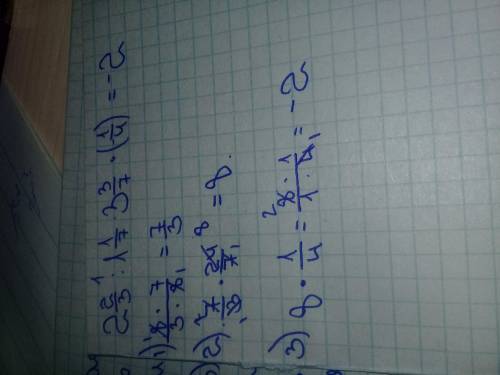 2 2/3 : 1 1/7 · 3 3/7 · (1/4) = -2
1) 8 · 7 / 3 · 8 = 7/3
2) 7/3 · 24/7 = 8.
3) 8 · 1/4 = 8 · 1 / 1 · 4 = -2